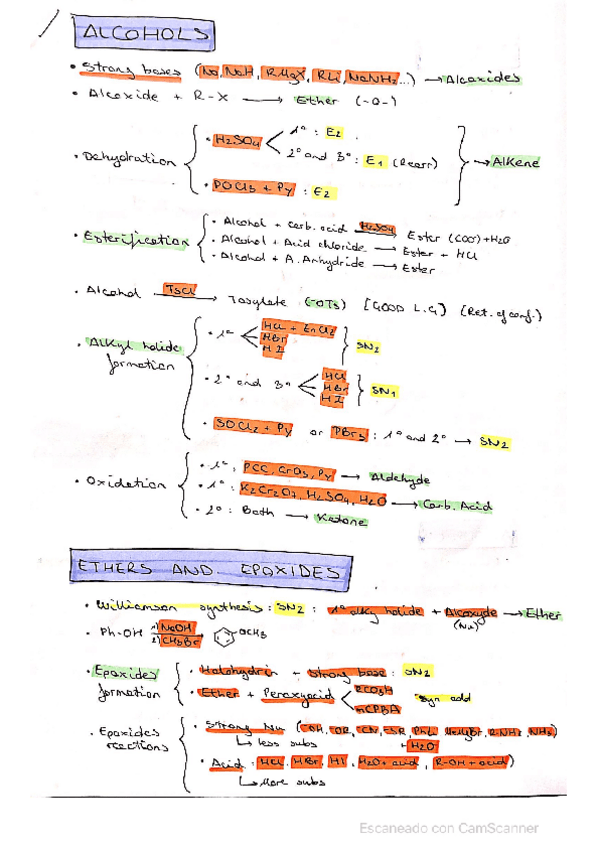 ALCOHOLS
• Strong bases (Na, NaH, RMgX, RLi, NaNH2...) → Alcoxides
• Alcoxide + R-X → Ether (-O-)
• Dehydration
• H2SO4
1º : E2
2º and 3º : E1 (Rearr)
• POCl3 + Py : E2
→ Alkene
• Esterification
• Alcohol + Carb. acid H2SO4 Ester (COO) + H2O
• Alcohol + Acid chloride → Ester + HCl
• Alcohol + A. Anhydride → Ester
• Alcohol TsCl → Tosylate (-OTs) [GOOD L.G] (Ret. of conf.)
• Alkyl halide formation
• 1º
HCl + ZnCl2
HBr
HI
SN2
• 2º and 3º
HCl
HBr
HI
SN1
• SOCl2 + Py or PBr3 : 1º and 2º → SN2
• Oxidation
• 1º, PCC, CrO3, Py → Aldehyde
• 1º : K2Cr2O7, H2SO4, H2O → Carb. Acid
• 2º : Both → Ketone
ETHERS AND EPOXIDES
• Williamson synthesis : SN2 : 1º alky halide + Alcoxyde → Ether
(Nu)
• Ph-OH 1) NaOH 2) CH3Br → OCH3
• Epoxides formation
• Halohydrin + Strong base : SN2
• Ether + Peroxyacid
RCO3H
mCPBA
Syn add
• Epoxides reactions
• Strong Nu (OH, OR, CN, R-NH2, NH3)
+ H2O
↳ less subs
• Acid : HCl, HBr, HI, H2O + acid, R-OH + acid)
↳ More subs
Escaneado con CamScanner